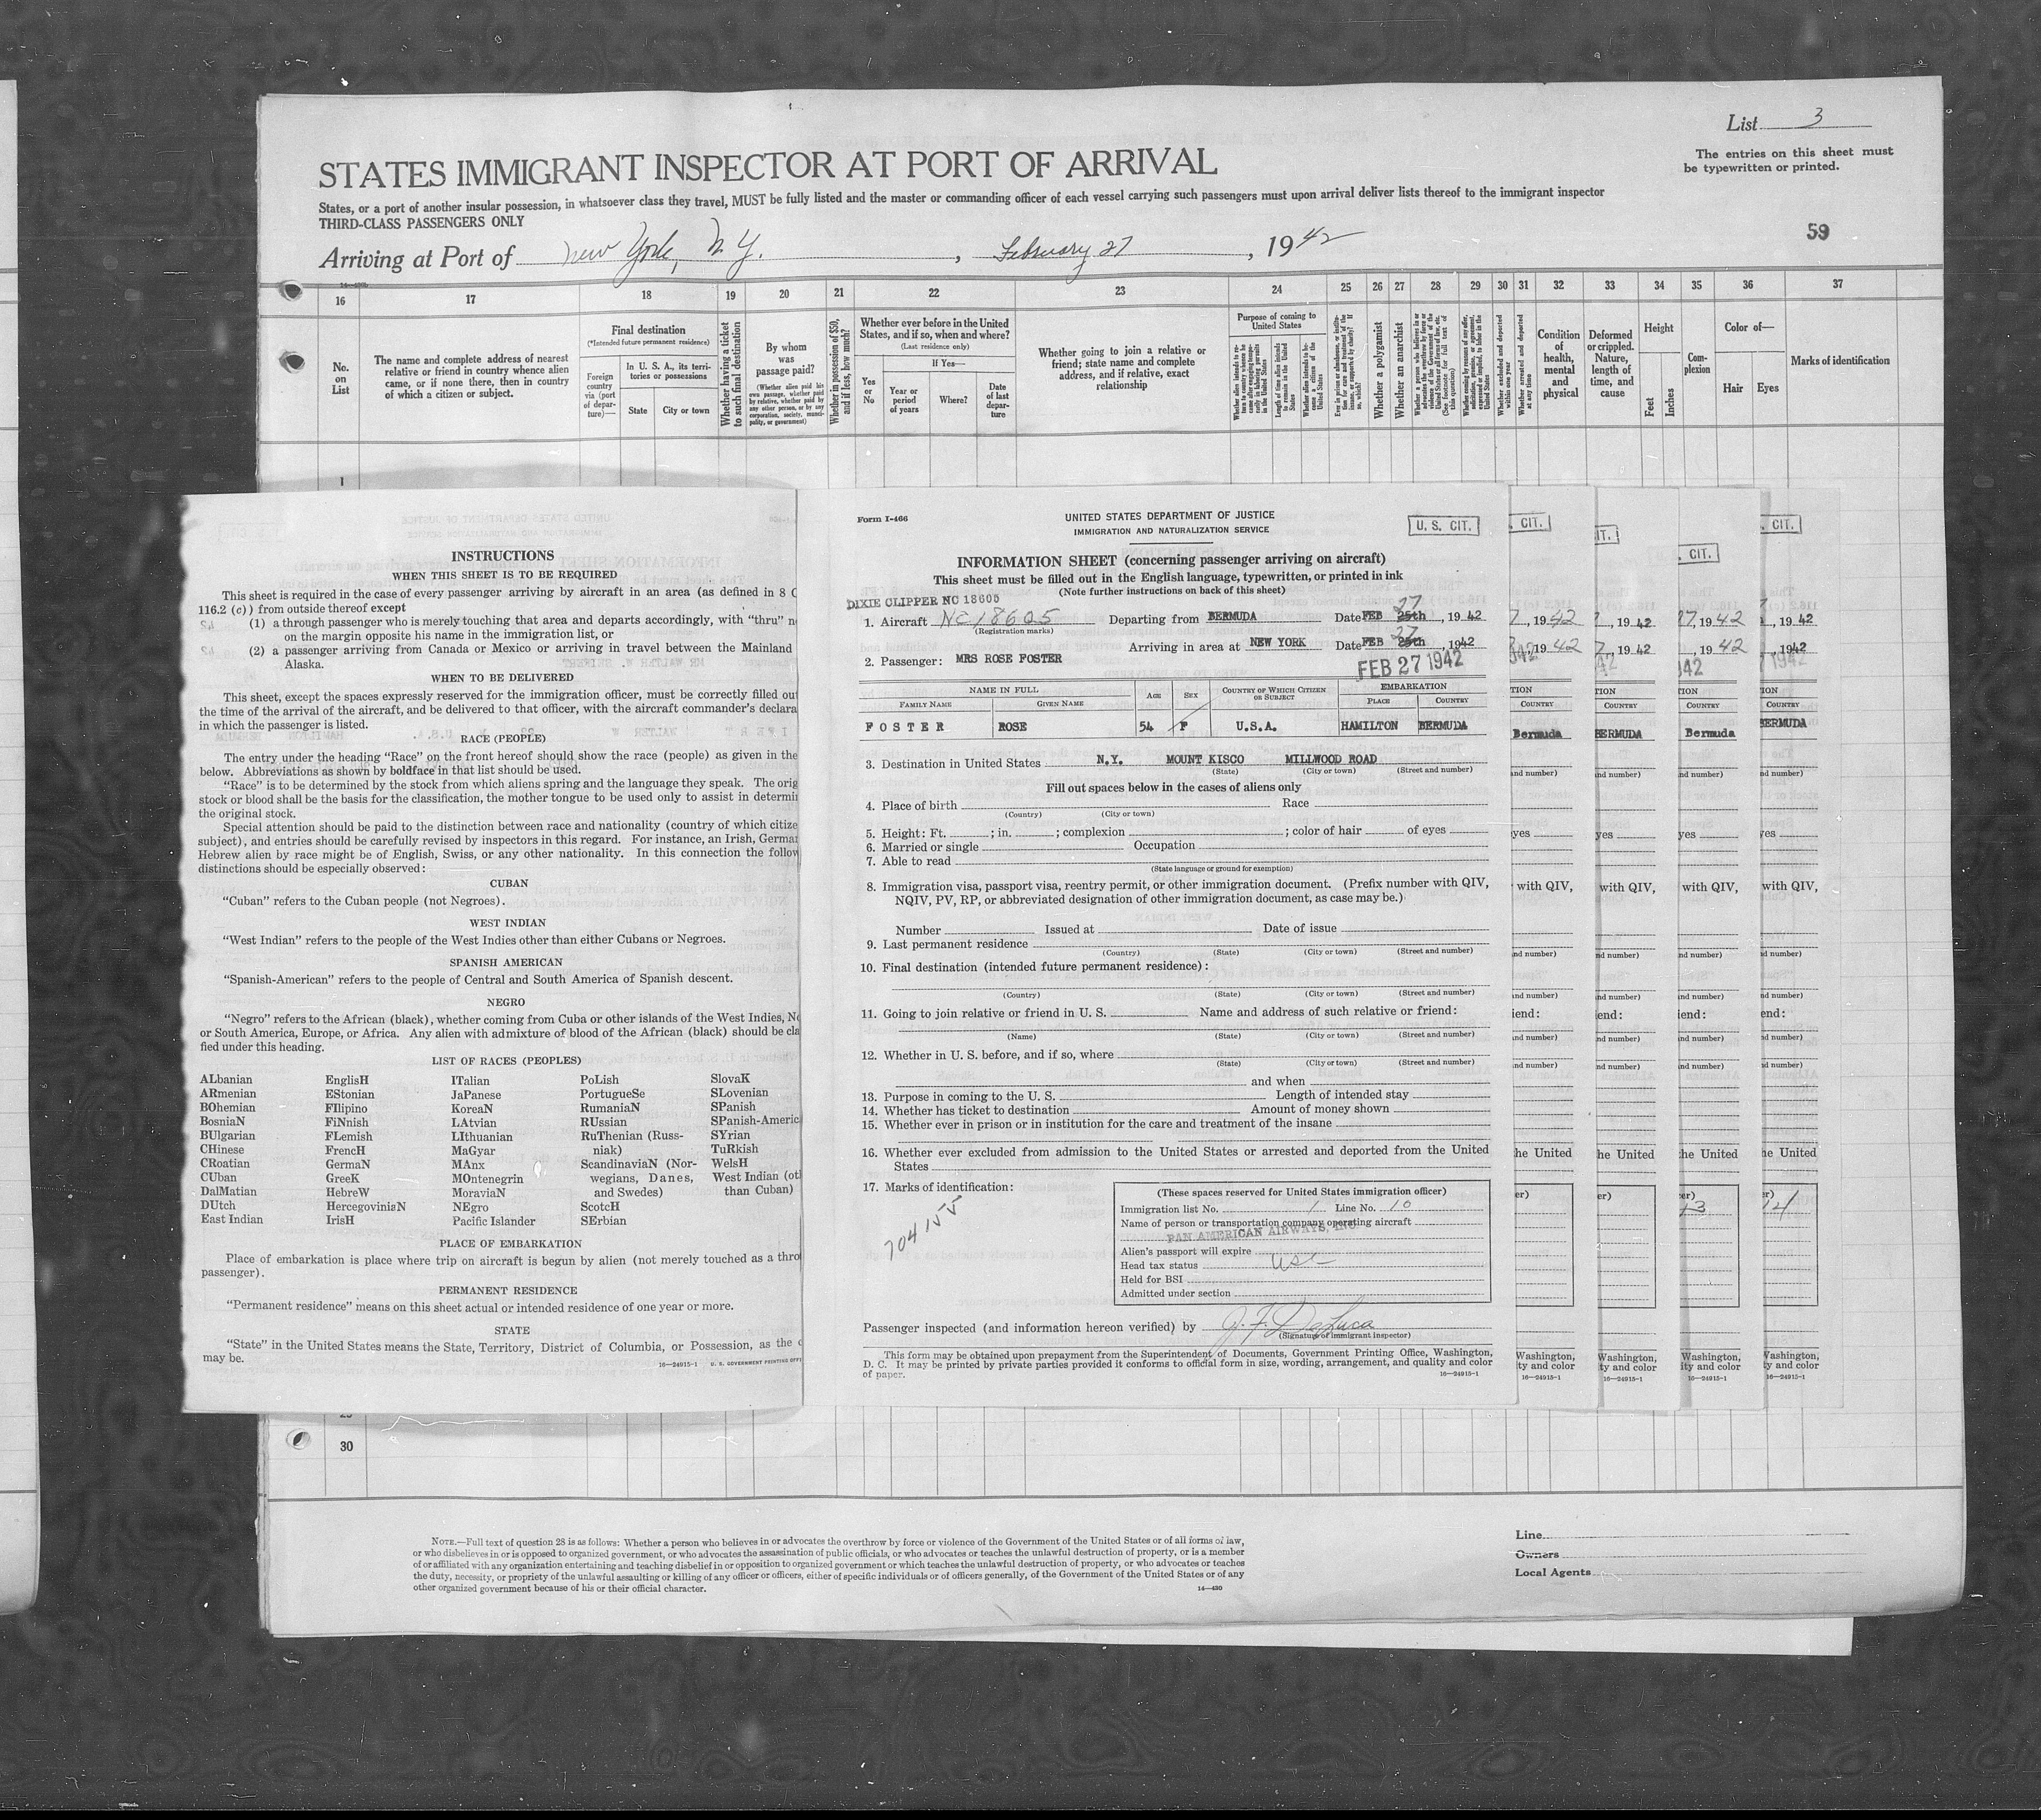 List 3
The entries on this sheet must
be typewritten or printed.
STATES IMMIGRANT INSPECTOR AT PORT OF ARRIVAL
States, or a port of another insular possession, in whatsoever class they travel, MUST be fully listed and the master or commanding officer of each vessel carrying such passengers must upon arrival deliver lists thereof to the immigrant inspector
THIRD-CLASS PASSENGERS ONLY
59
Arriving at Port of New York, N.Y. , February 27 , 1942
16 17 18 19 20 21 22 23 24 25 26 27 28 29 30 31 32 33 34 35 36 37
No. on List
The name and complete address of nearest
relative or friend in country whence alien
came, or if none there, then in country
of which a citizen or subject.
Final destination
(*Intended future permanent residence)
Foreign country via (port of departure)—
In U. S. A., its territories or possessions
State
City or town
Whether having a ticket to such final destination
By whom was passage paid?
(Whether alien paid his own passage, whether paid by relative, whether paid by any other person, or by any corporation, society, municipality, or government)
Whether in possession of $50, and if less, how much?
Whether ever before in the United
States, and if so, when and where?
(Last residence only)
Yes or No
If Yes—
Year or period of years
Where?
Date of last departure
Whether going to join a relative or
friend; state name and complete
address, and if relative, exact
relationship
Purpose of coming to United States
Whether a polygamist
Whether an anarchist
Whether excluded and deported within one year
Whether arrested and deported at any time
Condition of health, mental and physical
Deformed or crippled. Nature, length of time, and cause
Height
Feet
Inches
Complexion
Color of—
Hair
Eyes
Marks of identification
1
INSTRUCTIONS
WHEN THIS SHEET IS TO BE REQUIRED
This sheet is required in the case of every passenger arriving by aircraft in an area (as defined in 8 C
116.2 (c)) from outside thereof except
(1) a through passenger who is merely touching that area and departs accordingly, with "thru" n
on the margin opposite his name in the immigration list, or
(2) a passenger arriving from Canada or Mexico or arriving in travel between the Mainland
Alaska.
WHEN TO BE DELIVERED
This sheet, except the spaces expressly reserved for the immigration officer, must be correctly filled out
the time of the arrival of the aircraft, and be delivered to that officer, with the aircraft commander's declara
in which the passenger is listed.
RACE (PEOPLE)
The entry under the heading "Race" on the front hereof should show the race (people) as given in the
below. Abbreviations as shown by boldface in that list should be used.
"Race" is to be determined by the stock from which aliens spring and the language they speak. The orig
stock or blood shall be the basis for the classification, the mother tongue to be used only to assist in determi
the original stock.
Special attention should be paid to the distinction between race and nationality (country of which citize
subject), and entries should be carefully revised by inspectors in this regard. For instance, an Irish, Germa
Hebrew alien by race might be of English, Swiss, or any other nationality. In this connection the follow
distinctions should be especially observed:
CUBAN
"Cuban" refers to the Cuban people (not Negroes).
WEST INDIAN
"West Indian" refers to the people of the West Indies other than either Cubans or Negroes.
SPANISH AMERICAN
"Spanish-American" refers to the people of Central and South America of Spanish descent.
NEGRO
"Negro" refers to the African (black), whether coming from Cuba or other islands of the West Indies, No
or South America, Europe, or Africa. Any alien with admixture of blood of the African (black) should be cla
fied under this heading.
LIST OF RACES (PEOPLES)
ALbanian EnglisH ITalian PoLish SlovaK
ARmenian EStonian JaPanese PortugueSe SLovenian
BOhemian FIlipino KoreaN RumaniaN SPanish
BosniaN FiNnish LAtvian RUssian SPanish-Americ
BUlgarian FLemish LIthuanian RuThenian (Russ- SYrian
CHinese FrencH MaGyar niak) TuRkish
CRoatian GermaN MAnx ScandinaviaN (Nor- WelsH
CUban GreeK MOntenegrin wegians, Danes, West Indian (ot
DalMatian HebreW MoraviaN and Swedes) than Cuban)
DUtch HercegoviniaN NEgro ScotcH
East Indian IrisH Pacific Islander SErbian
PLACE OF EMBARKATION
Place of embarkation is place where trip on aircraft is begun by alien (not merely touched as a thro
passenger).
PERMANENT RESIDENCE
"Permanent residence" means on this sheet actual or intended residence of one year or more.
STATE
"State" in the United States means the State, Territory, District of Columbia, or Possession, as the c
may be.
16—24915-1 U. S. GOVERNMENT PRINTING OFF
Form I-466
UNITED STATES DEPARTMENT OF JUSTICE
IMMIGRATION AND NATURALIZATION SERVICE
U. S. CIT.
INFORMATION SHEET (concerning passenger arriving on aircraft)
This sheet must be filled out in the English language, typewritten, or printed in ink
(Note further instructions on back of this sheet)
DIXIE CLIPPER NC 18605
1. Aircraft NC18605 Departing from BERMUDA Date FEB 25th 27, 1942
(Registration marks)
Arriving in area at NEW YORK Date FEB 25th 27, 1942
2. Passenger: MRS ROSE FOSTER
FEB 27 1942
NAME IN FULL AGE SEX COUNTRY OF WHICH CITIZEN OR SUBJECT EMBARKATION
FAMILY NAME GIVEN NAME PLACE COUNTRY
FOSTER ROSE 54 F U.S.A. HAMILTON BERMUDA
3. Destination in United States N.Y. MOUNT KISCO MILLWOOD ROAD
(State) (City or town) (Street and number)
Fill out spaces below in the cases of aliens only
4. Place of birth Race
(Country) (City or town)
5. Height: Ft. ; in. ; complexion ; color of hair of eyes
6. Married or single Occupation
7. Able to read
(State language or ground for exemption)
8. Immigration visa, passport visa, reentry permit, or other immigration document. (Prefix number with QIV,
NQIV, PV, RP, or abbreviated designation of other immigration document, as case may be.)
Number Issued at Date of issue
9. Last permanent residence
(Country) (State) (City or town) (Street and number)
10. Final destination (intended future permanent residence):
(Country) (State) (City or town) (Street and number)
11. Going to join relative or friend in U. S. Name and address of such relative or friend:
(Name) (State) (City or town) (Street and number)
12. Whether in U. S. before, and if so, where
(State) (City or town) (Street and number)
and when
13. Purpose in coming to the U. S. Length of intended stay
14. Whether has ticket to destination Amount of money shown
15. Whether ever in prison or in institution for the care and treatment of the insane
16. Whether ever excluded from admission to the United States or arrested and deported from the United
States
17. Marks of identification:
704155
(These spaces reserved for United States immigration officer)
Immigration list No. 1 Line No. 10
Name of person or transportation company operating aircraft
PAN AMERICAN AIRWAYS, INC.
Alien's passport will expire
Head tax status USC
Held for BSI
Admitted under section
Passenger inspected (and information hereon verified) by J. F. DeLuca
(Signature of immigrant inspector)
This form may be obtained upon prepayment from the Superintendent of Documents, Government Printing Office, Washington,
D. C. It may be printed by private parties provided it conforms to official form in size, wording, arrangement, and quality and color
of paper.
16—24915-1
30
NOTE.—Full text of question 28 is as follows: Whether a person who believes in or advocates the overthrow by force or violence of the Government of the United States or of all forms of law,
or who disbelieves in or is opposed to organized government, or who advocates the assassination of public officials, or who advocates or teaches the unlawful destruction of property, or is a member
of or affiliated with any organization entertaining and teaching disbelief in or opposition to organized government or which teaches the unlawful destruction of property, or who advocates or teaches
the duty, necessity, or propriety of the unlawful assaulting or killing of any officer or officers, either of specific individuals or of officers generally, of the Government of the United States or of any
other organized government because of his or their official character.
14—430
Line
Owners
Local Agents